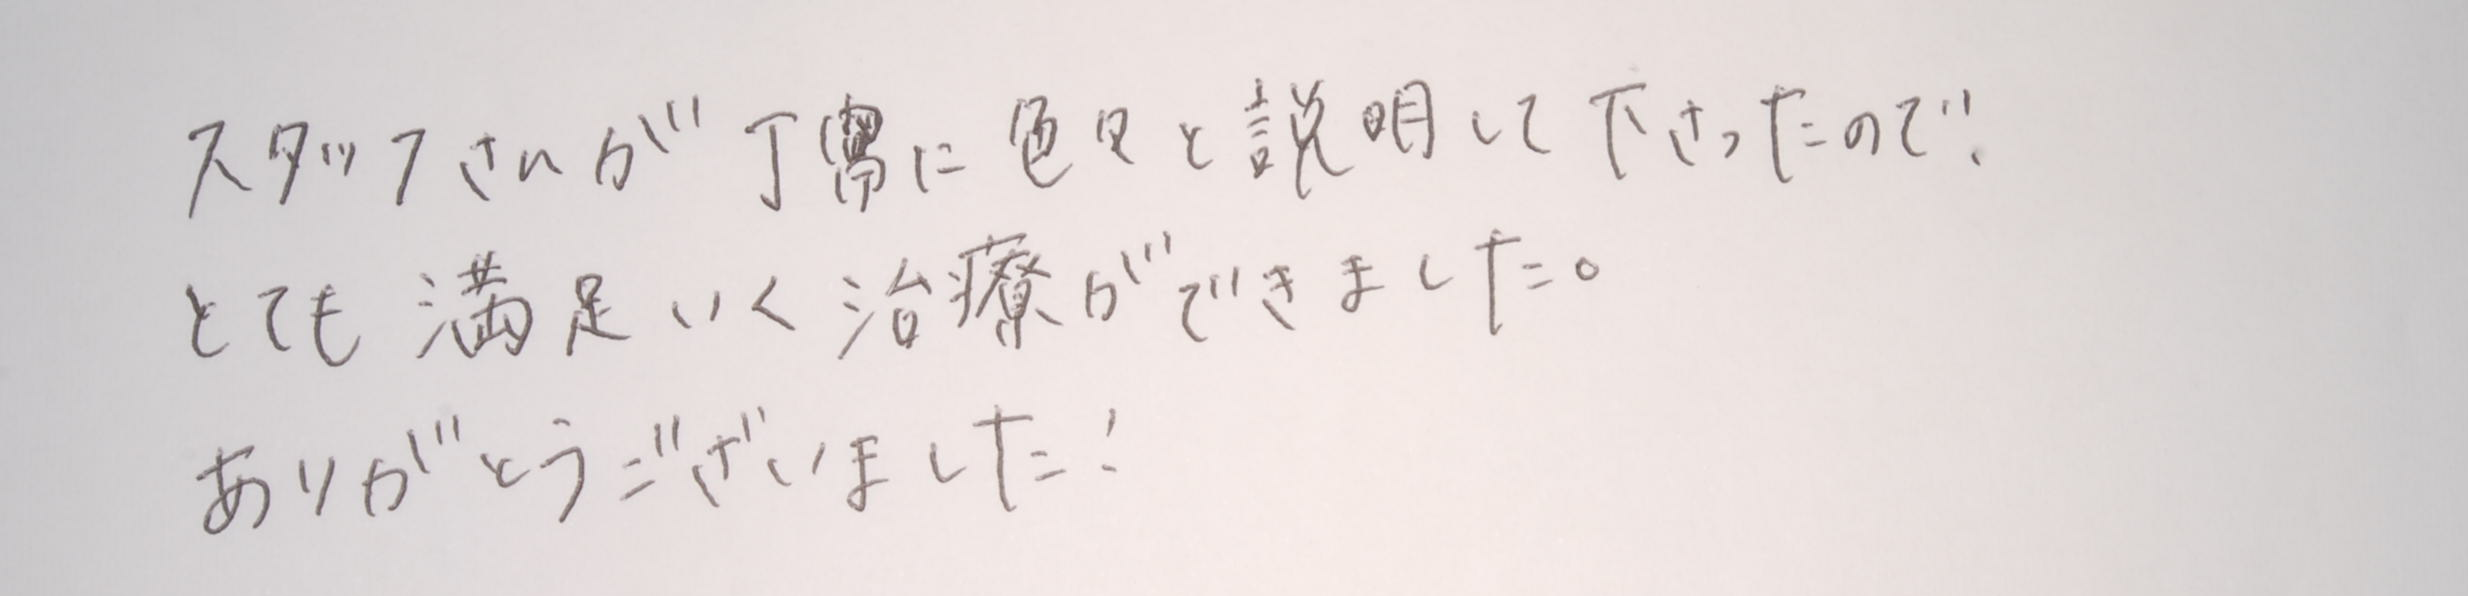 スタッフさんが丁寧に色々と説明して下さったので、
とても満足いく治療ができました。
ありがとうございました!